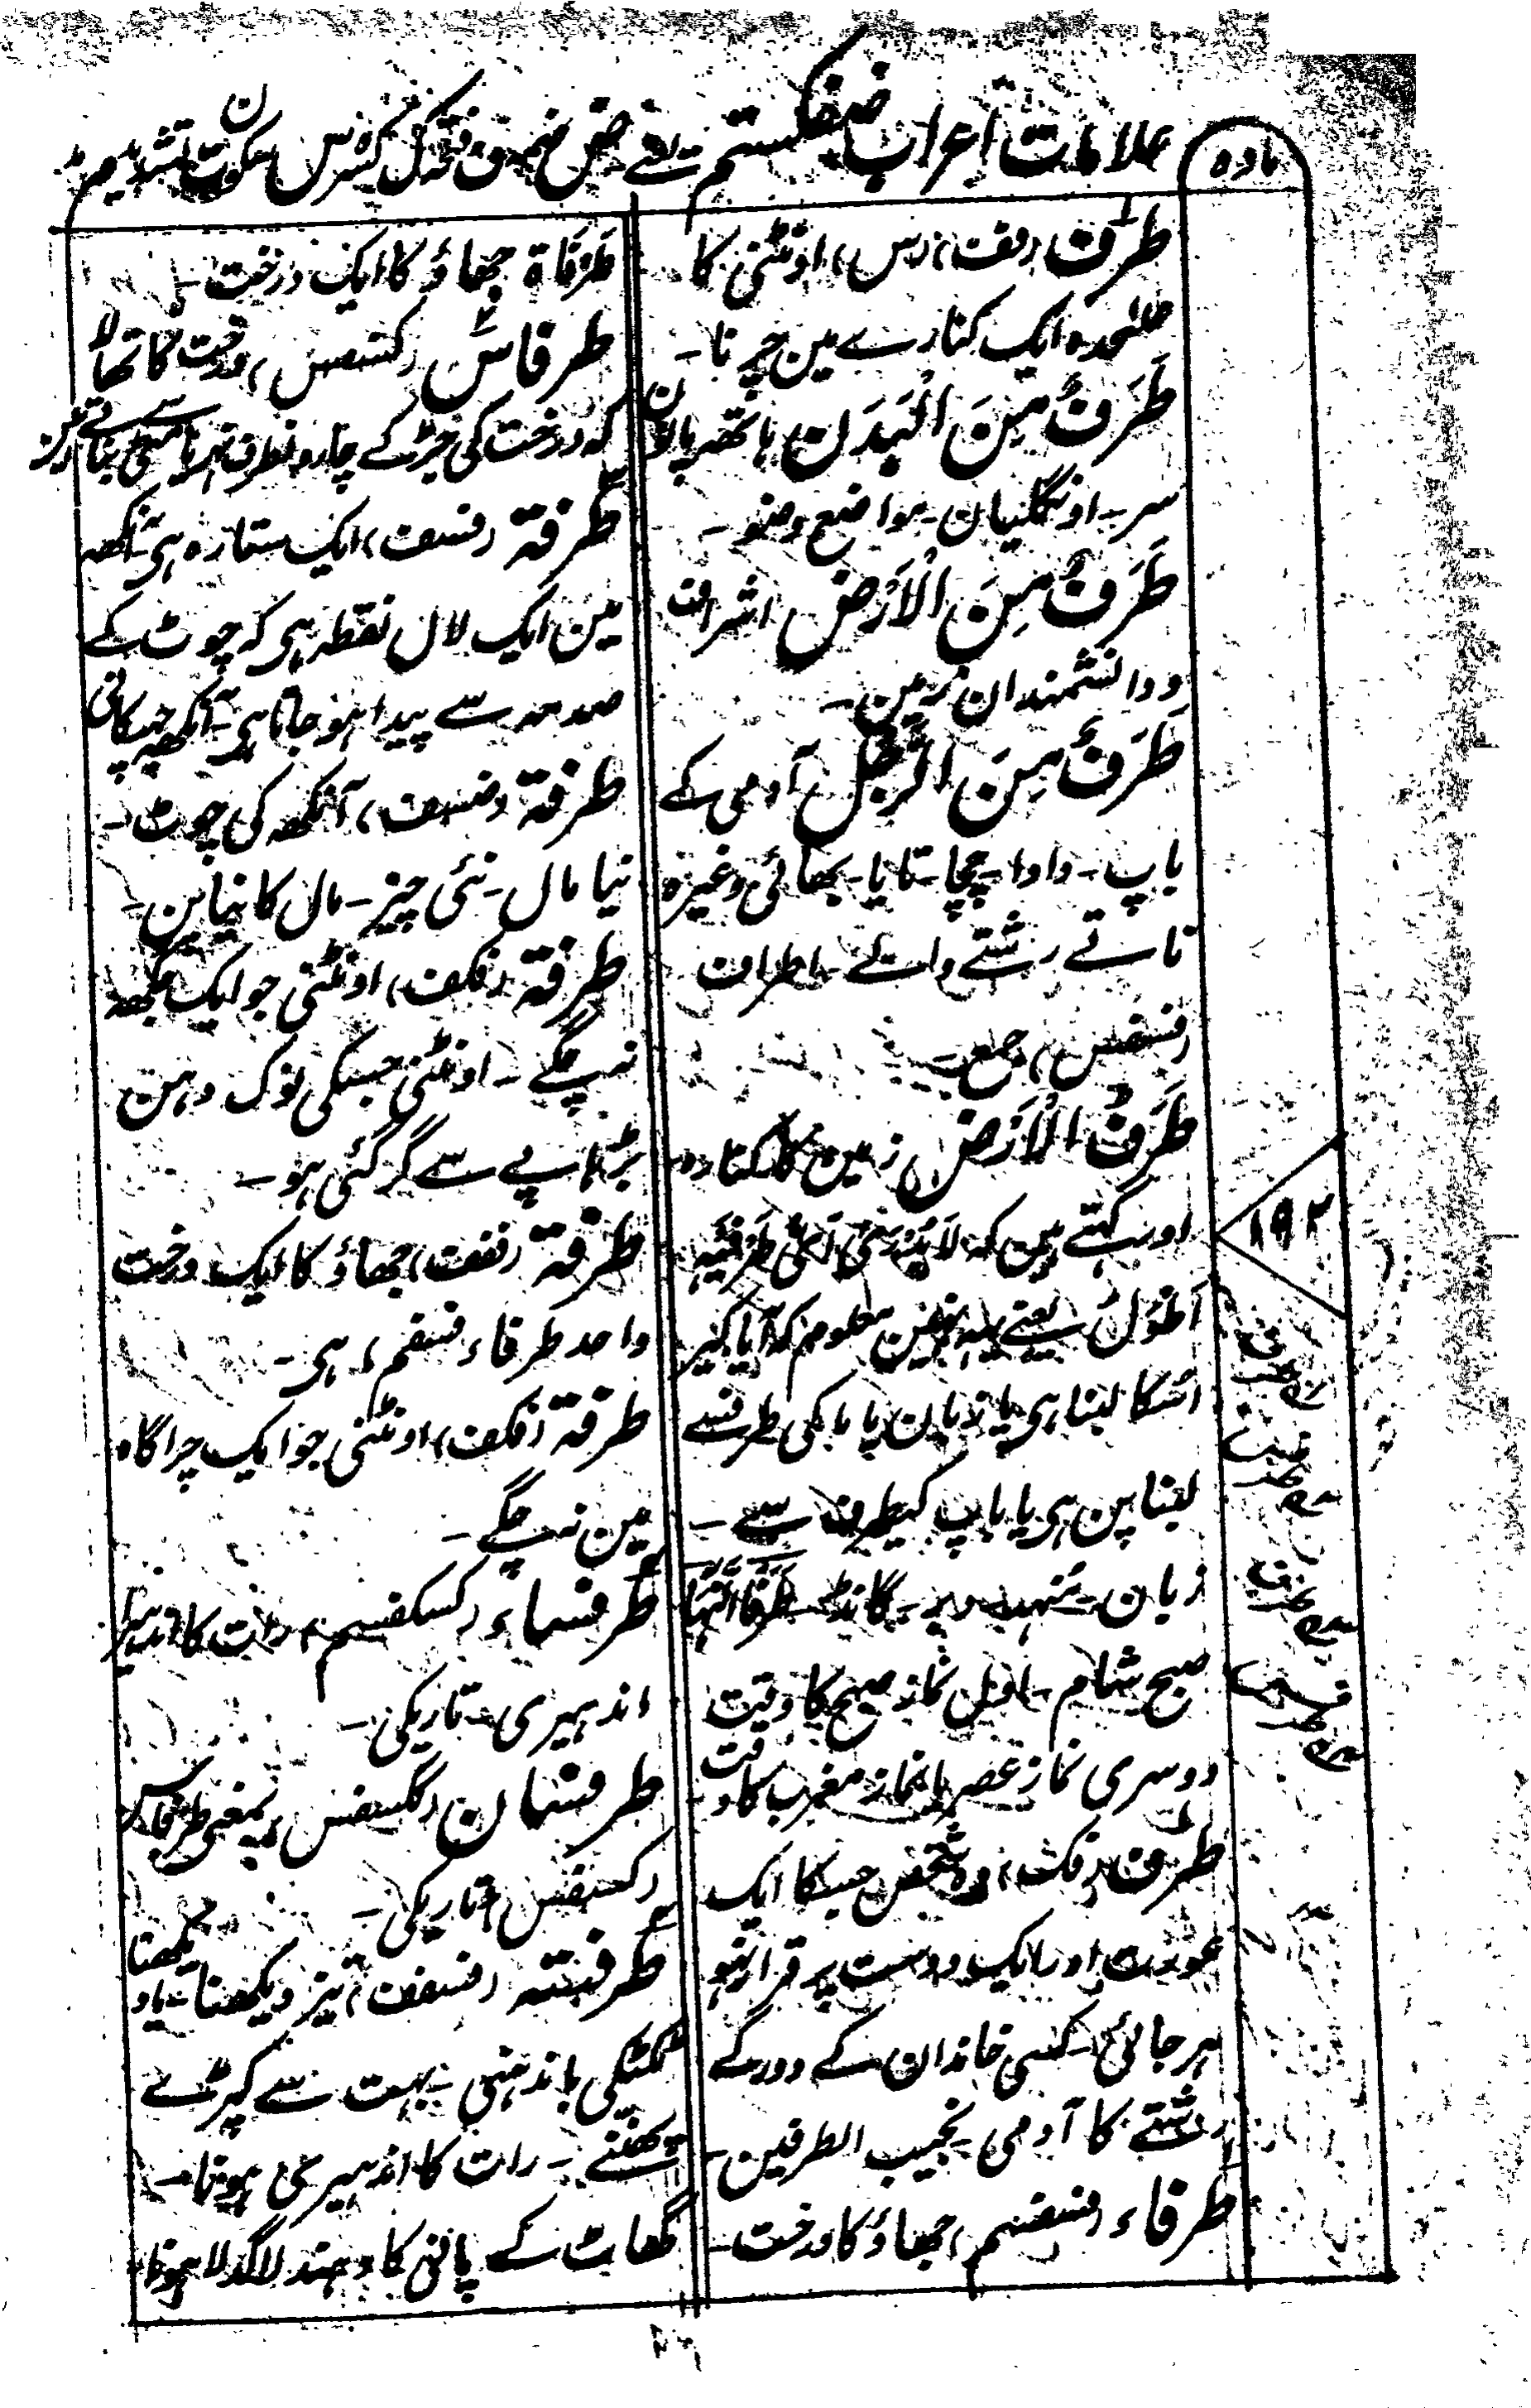 مادہ
علامات اعراب ضفکستم یعنے ض ضمہ ف فتحہ ک کسرہ س سکون ت تشدید م مد
طرف (فف، رس) اونٹنی کا
علٰحدہ ایک کنارے مین چرنا۔
طَرَفٌ مِنَ الْبَدَن ہاتھہ پانون
سر۔ اونگلیان۔ مواضع وضو۔
طَرَفٌ مِنَ الْاَرْض اشراف
و دانشمندان زمین۔
طَرَفٌ مِنَ الرَّجُل آدمی کے
باپ۔ دادا۔ چچا۔ تایا۔ بھائی وغیرہ
ناتے رشتے والے۔ اطراف
(فسفس) جمع۔
طَرَفُ الْاَرْض زمین کا کنارہ۔
اور کہتے ہین کہ لَا یُدْرٰی اَیُّ طَرَفَیْہِ
اَطْوَلُ یعنے یہہ نہین معلوم کہ آیا کیر
اسکا لنبا ہی یا زبان یا مانکی طرفسے
لنبا پن ہی یا باپ کیطرف سے۔
زبان۔ منہہ۔ گانڈ۔ طَرَفَا النَّہَار
صبح شام۔ اول نماز صبح کا وقت
دوسری نماز عصر یا نماز مغرب کا وقت
طرف (فک) وہ شخص جسکا ایک
عورت اور ایک دوست پر قرار نہو
ہرجائی۔ کسی خاندان کے دور کے
رشتے کا آدمی۔ نجیب الطرفین۔
طرفاء (فسفسم) جھاؤ کا درخت۔
طَرَفَاۃ جھاؤ کا ایک درخت۔
طرفاش (کسفس) درخت کا تھالا
کہ درخت کی جڑ کے چارونطرف مٹی سے بناتے ہین
طرفۃ (فسف) ایک ستارہ ہی۔ آنکھہ
مین ایک لال نقطہ ہی کہ چوٹ کے
صدمہ سے پیدا ہو جاتا ہی۔ آنکھہ جھپکانی
طرفۃ (ضسف) آنکھہ کی چوٹ۔
نیا مال۔ نئی چیز۔ مال کا نیاپن۔
طرفۃ (فکف) اونٹنی جو ایک جگہہ
نہ چگے۔ اونٹنی جسکی نوک دہن
بڑہاپے سے گر گئی ہو۔
طرفۃ (ففف) جھاؤ کا ایک درخت
واحد طرفاء (فسفم) ہی۔
طرفۃ (فکف) اونٹنی جو ایک چراگاہ
مین نہ چگے۔
طرفساء (کسکفسم) رات کا اندہیرا
اندہیری۔ تاریکی۔
طرفسان (کسفس) بمعنی طرفاس
(کسفس) تاریکی۔
طرفستہ (فسفف) تیز دیکھنا۔
ٹکٹکی باندہنی۔ بہت سے کپڑے
پہننے۔ رات کا اندہیری ہونا۔
گھاٹ کے پانی کا دہندلا گدلا ہونا۔
۱۹۲